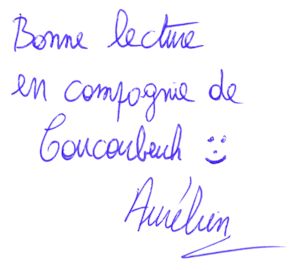 Bonne lecture
en compagnie de
Coucoubeuh
Aurélien